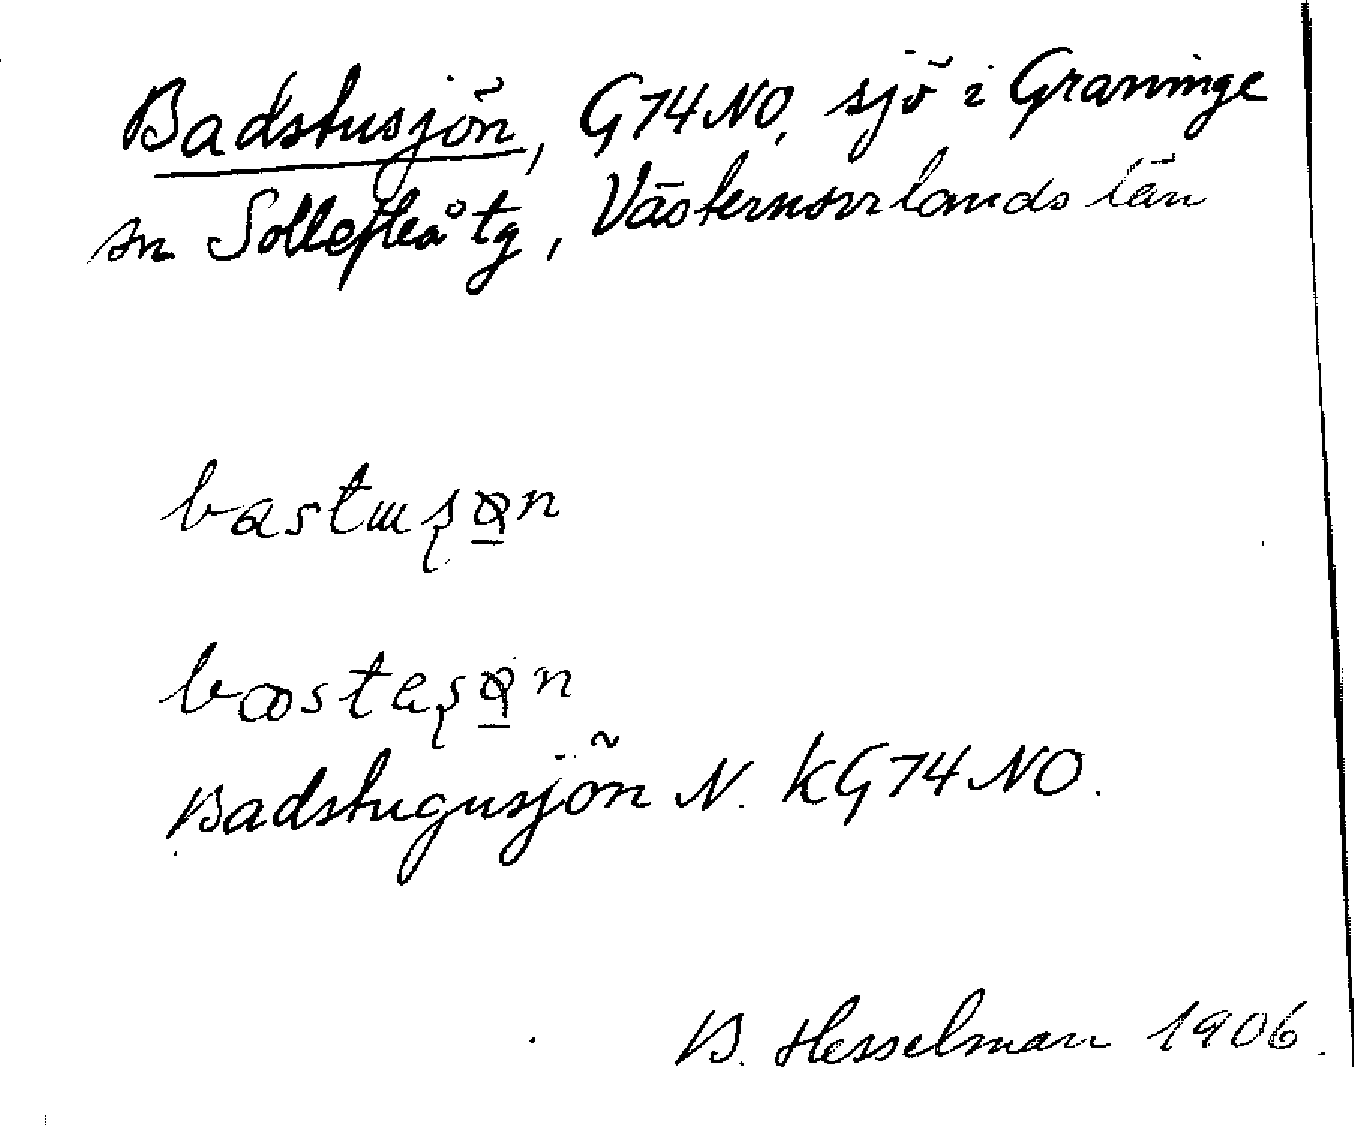 Badstusjön, G74NO, sjö i Graninge
sn Sollefteå tg, Västernorrlands län
bastuʂøn
bɑsteʂøn
Badstugusjön N. KG74NO.
B. Hesselman 1906.